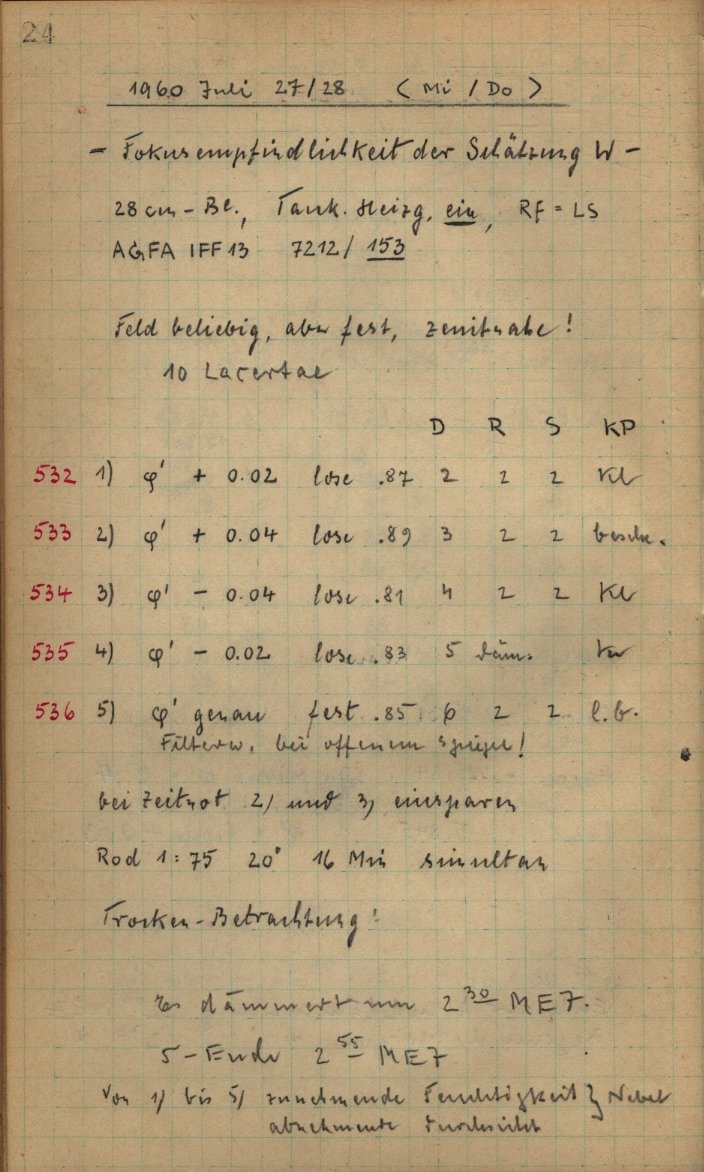 24
1960 Juli 27/28 (Mi / Do)
- Fokusempfindlichkeit der Schätzung W -
28 cm - Be., Tauk. Heizg. ein, Rf = LS
AGFA IFF 13 7212/ 153
Feld beliebig, aber fest, zenitnahe!
10 Lacertae
D R S KP
532 1) φ' + 0.02 lose .87 2 2 2 Kl
533 2) φ' + 0.04 lose .89 3 2 2 beschr.
534 3) φ' - 0.04 lose .81 4 2 2 Kl
535 4) φ' - 0.02 lose .83 5 däm.
536 5) φ' genau fest .85 6 2 2 l.b.
Filterw. bei offenem Spiegel!
bei Zeitnot 2) und 3) einsparen
Rod 1:75 20° 16 Min simultan
Trocken-Betrachtung!
Es dämmert um 2 30 MEZ.
5-Ende 2 55 MEZ
Von 1) bis 5) zunehmende Feuchtigkeit } Nebel
abnehmende Durchsicht